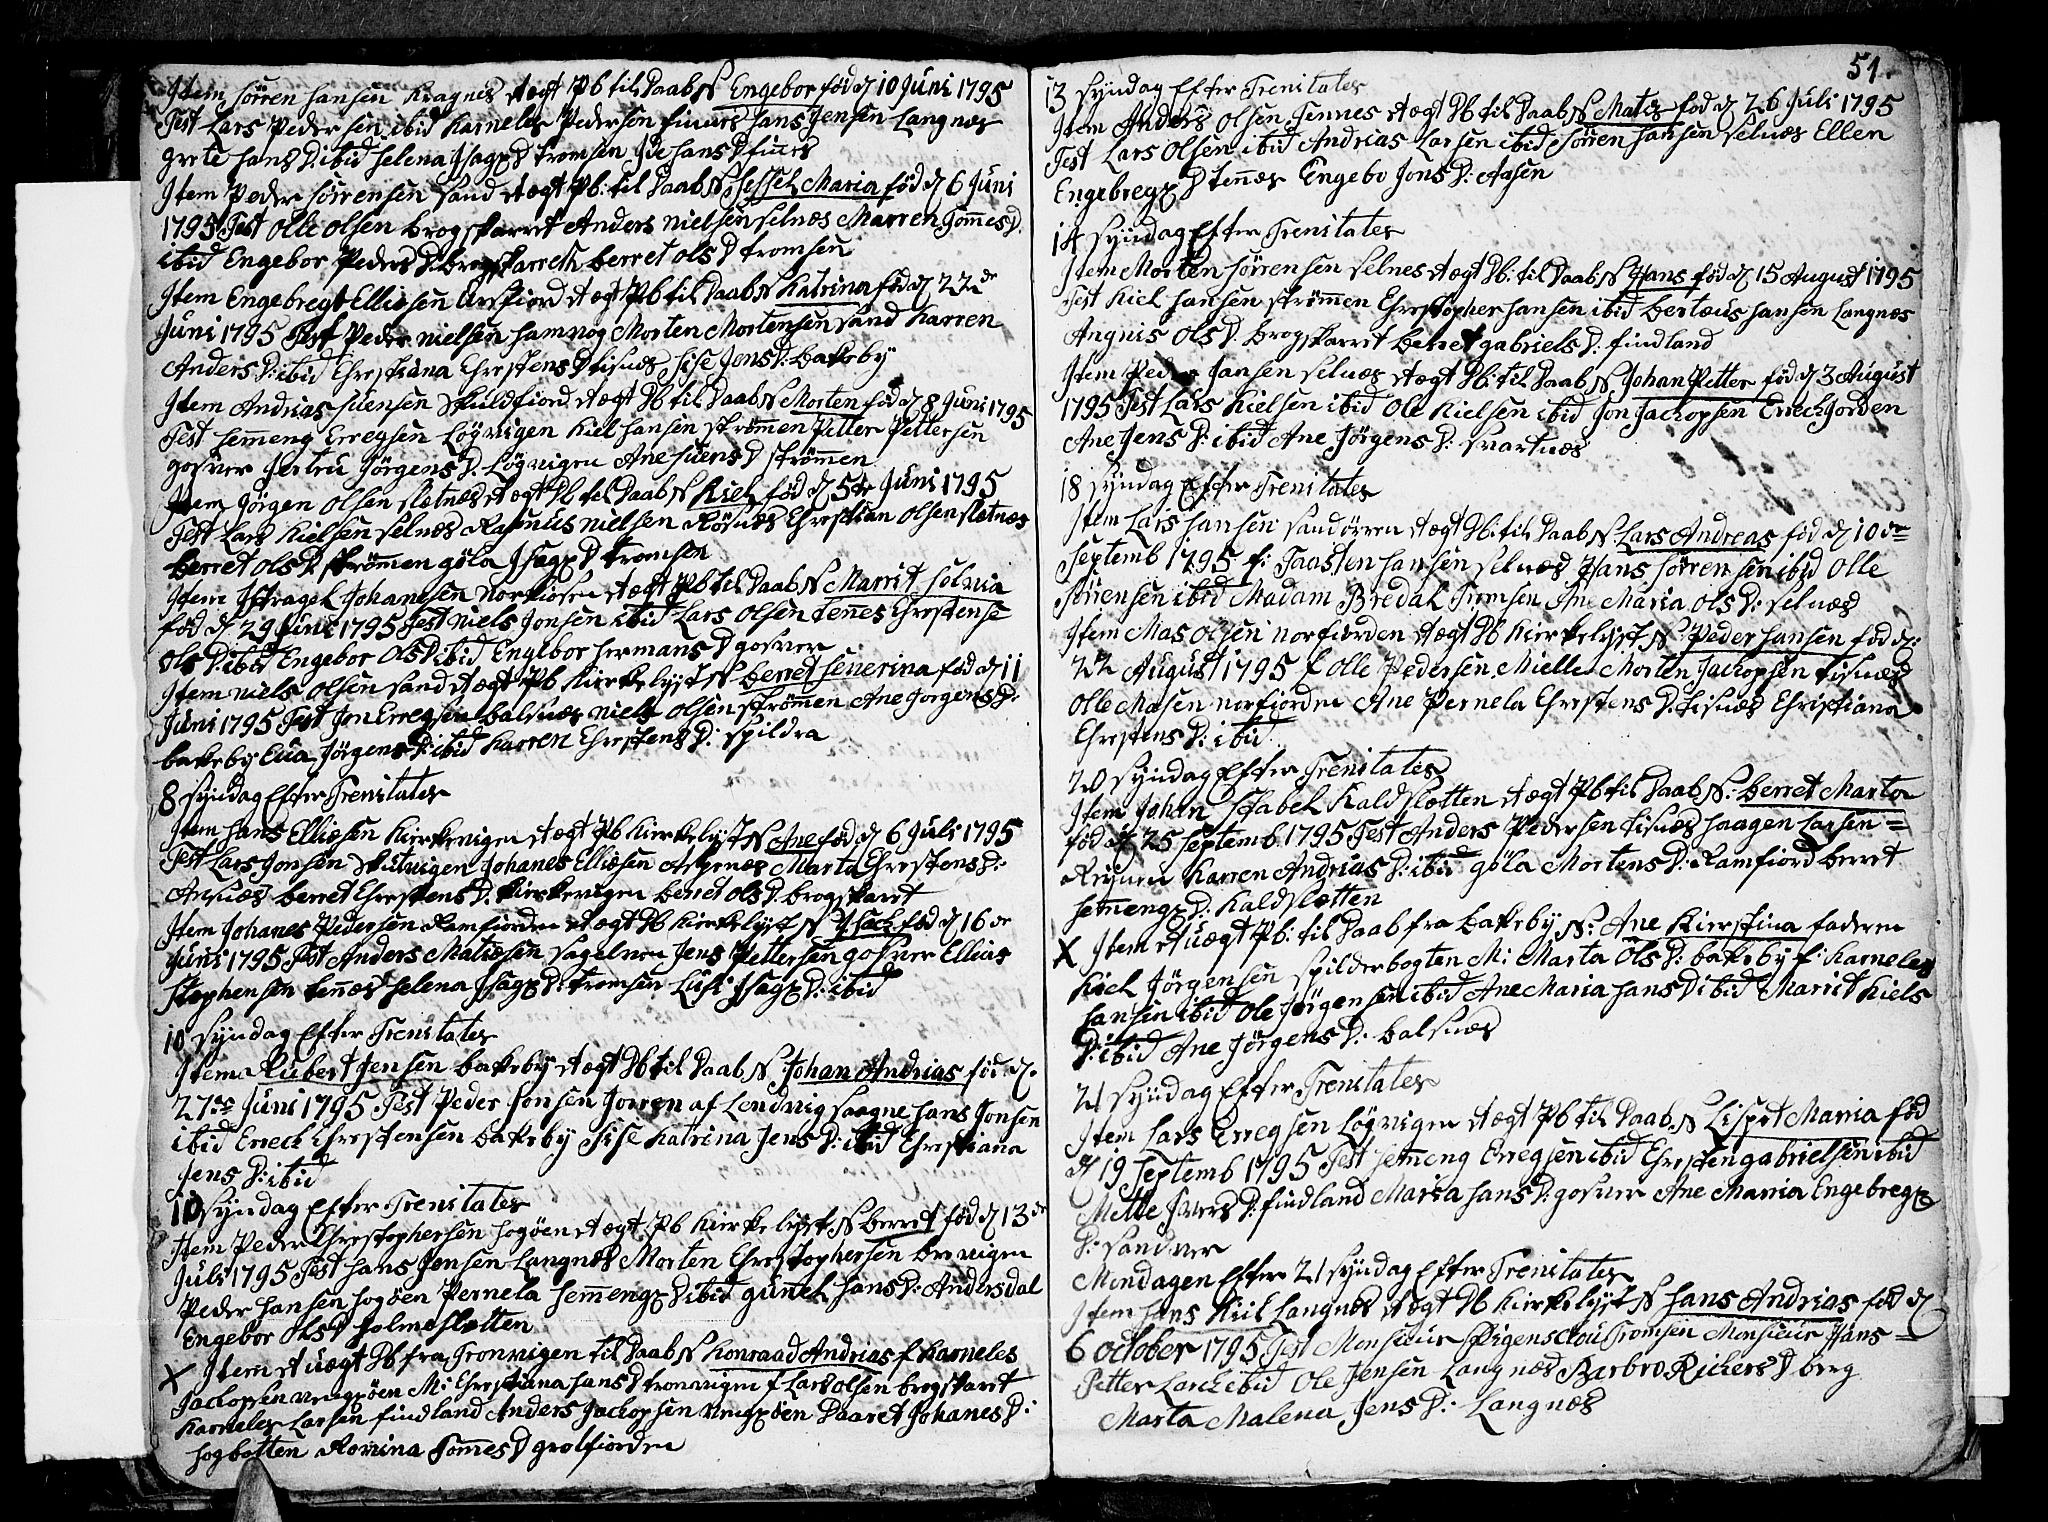 Item Sørren Hansen Kragnes et ægt Pb til Daab N Engebor fød d 10 Juni 1795
Test Lars Pedersen ibid Karneles Pedersen Hans Jensen Langnæs
Grete Hans D: ibid Helena Isagx D Tromsen Hans D
Item Peder Sørrensen Sand et ægt Pb: til Daab N Sessel Maria fød d 6 Juni
1795 Test Olle Olsen Brogskarret Anders Nielsen Selnæs Marren Tommes D:
ibid Engebor Peders D: Brogskarreth Berret Ols D Tromsen
Item Engebregt Elliesen Arsfiord et ægt Pb til Daab N Katrina fød d 22 de
Juni 1795 Test Peder Nielsen Hamnog Morten Mortensen Sand Karren
Anders D: ibid Chrestiana Chrestens D Tisnæs Sise Jons D: Bakeby
Item Andrias Suensen Skuldfiord et ægt Pb til Daab N Morten fød d 8 Juni 1795
Test Hemmeng Erregsen Løgvigen Kiel Hansen Strømmen Petter Pettersen
Gosver Jertru Jørgens D: Løgvigen Ane Suens D Strømmen
Item Jørgen Olsen Sletnæs et ægt Pb til Daab N Kiel fød d 5te Juni 1795
Test Lars Kielsen Selnæs Rasmus Nielsen Røsnæs Chrestian Olsen Sletnæs
Berret Ols D Strømmen Gøla Isagx D Tromsen
Item Istragel Johansen Norkiosen et ægt Pb til Daab N Marrit Solvia
fød d 29 Juni 1795 Test Niels Jonsen ibid Lars Olsen Tennes Chrestense
Ols D: ibid Engebor Ols D: ibid Engebor Hermans D Gosver
Item Niels Olsen Sand et ægt Pb Kierkelyst N Berret Severina fød d 11
Juni 1795 Test Jon Erregsen Balsnæs Niels Olsen Strømmen Ane Jorgens D:
Bakeby Eua Jørgens D: ibid Karren Chrestens D: Spildra
8 Syndag Efter Trenitates
Item Hans Elliesen Kierkevigen et ægt Pb Kierkelyst N Ane fød d 6 Juli 1795
Test Lars Jonsen Skutvigen Johanes Elliesen Marta Chrestens D:
Berret Chrestens D: Kierkevigen Berret Ols D: Brogskaret
Item Johanes Pedersen Ramfiorden et ægt Pb Kierkelyst N Isach fød d 16 de
Juni 1795 Test Anders Matiesen Sagelven Jens Pettersen Gosver Ellias
Stephensen Tennes Helena Isagx D: Tromsen Lusi Isagx D: ibid
10 Syndag Efter Trenitates
Item Rubert Jensen Bakeby et ægt Pb til Daab N Johan Andrias fød d.
27de Juni 1795 Test Peder Jonsen Jorren af Lendvig Saagne Hans Jonsen
ibid Erreck Chrestensen Bakeby Sise Katrina Jens D: ibid Chrestiana
Jens D: ibid
10 Syndag Efter Trenitates
Item Peder Chrestophersen Hogøen et ægt Pb Kierkelyst N Berret fød d 13 de
Juli 1795 Test Hans Jensen Langnæs Morten Chrestophersen Brevigen
Peder Hansen Hogøen Pernela Hemmengx D ibid Gunel Hans D: Andersdal
Engebor Ols D Holmesletten
X Item et uægt Pb fra Tronvigen til Daab N Konraad Andrias f Karneles
Jackopsen Vengxøen M: Chrestiana Hans D Tronvigen f Lars Olsen Brogskaret
Karneles Larsen Findland Anders Jackopsen Vengxøen Daaret Johanes D:
Hogbotten Romina Tommes D Grotfiorden
51.
13 Syndag Efter Trenitates
Item Anders Olsen Tennes et ægt Pb til Daab N Mates fød d 26 Juli 1795
Test Lars Olsen ibid Andrias Larsen ibid Sørren Hansen Selnæs Ellen
Engebregx D Tennes Engebo Jons D: Aasen
14 Syndag Efter Trenitates
Item Morten Sørrensen Selnes et ægt Pb: til Daab N Hans fød d 15 August 1795
Test Kiel Hansen Strømmen Chrestopher Hansen ibid Berteus Hansen Langnæs
Angnis Ols D: Brogskarret Berret Gabriels D: Findland
Item Peder Jansen Selnæs et ægt Pb: til Daab N Johan Petter fød d 3 August
1795 Test Lars Kielsen ibid Ole Kielsen ibid Jon Jackopsen Errechjorden
Ane Jens D: ibid Ane Jørgens D: Svartnæs
18 Syndag Efter Trenitates
Item Lars Hansen Sandørren et ægt Pb: til Daab N Lars Andreas fød d 10 de
Septemb 1795 f: Taasten Hansen Selnæs Hans Sørrensen ibid Olle
Sørrensen ibid Madam Bredal Tromsen Ane Maria Ols D: Selnæs
Item Mas Olsen Norfiorden et ægt Pb Kierkelyst N: Peder Hansen fød d:
22 August 1795 f Olle Pedersen Mielle Morten Jackopsen Tisnæs
Olle Masen Norfiorden Ane Pernela Chrestens D: Tisnæs Christiana
Chrestens D: ibid
20 Syndag Efter Trenitates
Item Johan Stabel Kaldsletten et ægt Pb til Daab N: Berret Marta
fød d 25 Septemb 1795 Test Anders Pedersen Tisnæs Haagen Larsen =
Karren Andrias D: ibid Gøla Mortens D: Ramfiord Berret
Hemengx D: Kaldsletten
X Item et uægt Pb: til Daab fra Bakeby N: Ane Kierstina faderen
Kiel Jørgensen Spilderbogten M: Marta Ols D: Bakeby f: Karneles
Hansen ibid Ole Jørgensen ibid Ane Maria Hans D ibid Marrit Kiels
D: ibid Ane Jørgens D: Balsnæs
21 Syndag Efter Trenitates
Item Lars Erregsen Løgvigen et ægt Pb til Daab N Lisbet Marria fød
d 19 Septemb 1795 Test Hemmeng Erregsen ibid Chresten Gabrielsen ibid
Mette Ivers D: Findland Maria Hans D: Gosver Ane Marria Engebregx
D: Sandver
Mondagen Efter 21 Syndag Efter Trenitates
Item Hans Kiil Langnæs et ægt Pb Kierkelyst N Hans Andrias fød d
6 October 1795 Test Monsieur Figenschou Tromsen Monsieur Hans =
Petter Larck ibid Ole Jensen Langnæs Barbro Richers D Berg
Marta Malena Jens D: Langnæs